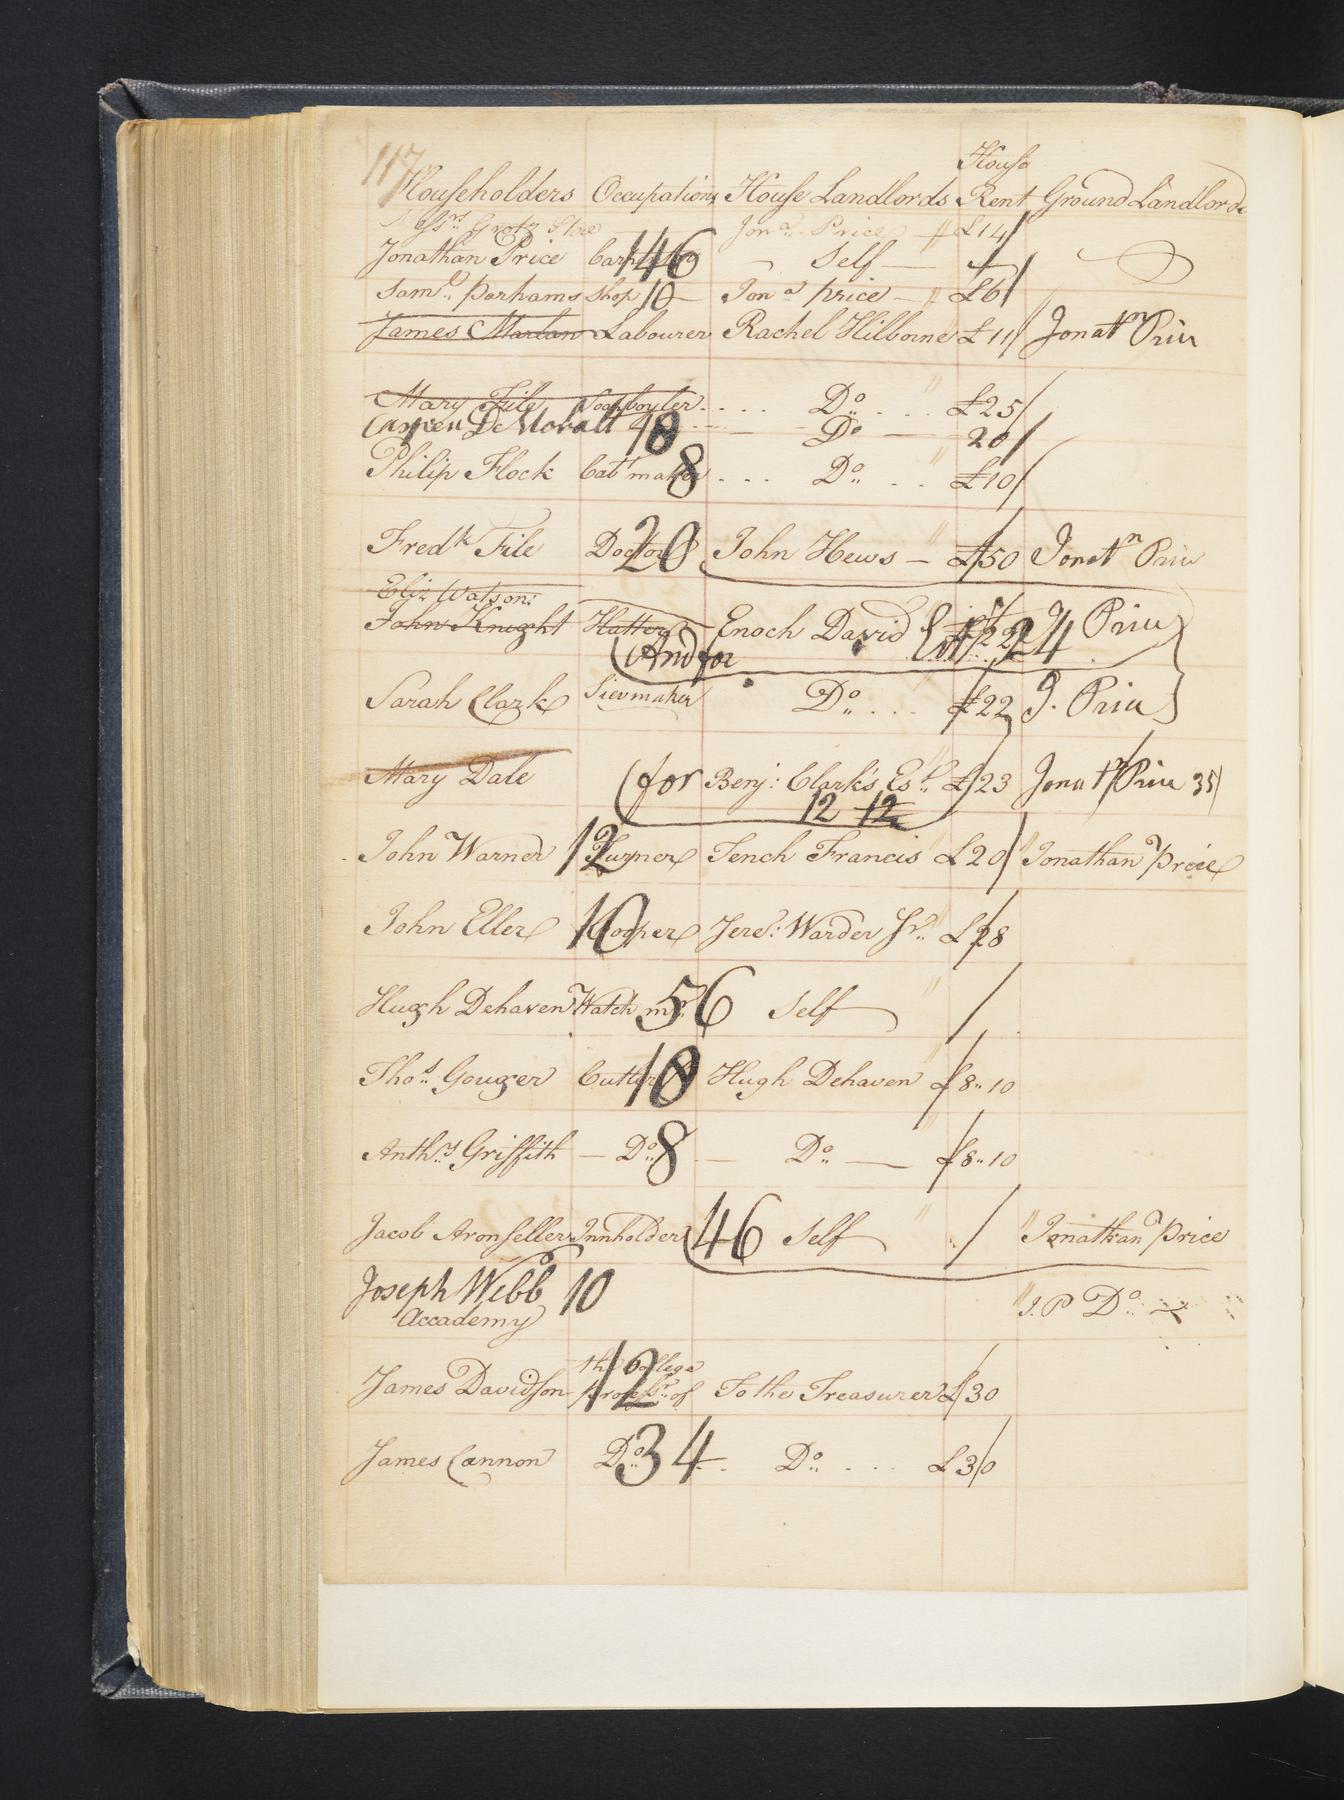 117
House
Householders Occupations House Landlords Rent Ground Landlords
Messrs. Grotz Store Jona. Price £14
Jonathan Price Carpenter 146 Self
Saml. Parhams Shop 10 Jona. price £6
James Marlan Labourer Rachel Hilborne £11 Jonatn Price
Mary File Soapboyler Do. £25
Casper DeMoralt 18 Do 20
Philip Flock Cabt maker 8 Do. £10
Fredk File Doctor 20 John Hews £50 Jonatn Price
Eliz Watson:
John Knight Hatter Enoch David Est £22 24 J Price
(And for
Sarah Clark Sievmaker Do. £22 J. Price
Mary Dale (for Benj: Clark's Est. £23 Jonatn Price 35
12 12
John Warner 12 Turner Tench Francis £20 Jonathan Price
John Eller 10 Cooper Jere: Warder Jr. £28
Hugh Dehaven Watch mr 56 Self
Thos. Gouger Cutler 18 Hugh Dehaven £8..10
Anthy. Griffith Do. 8 Do. £8..10
Jacob Aronfeller Innholder 46 Self Jonathan Price
Joseph Webb 10
Accademy J. P Do.
the College
James Davidson professr. of 12 To the Treasurer £30
James Cannon Do. 34 Do. £30